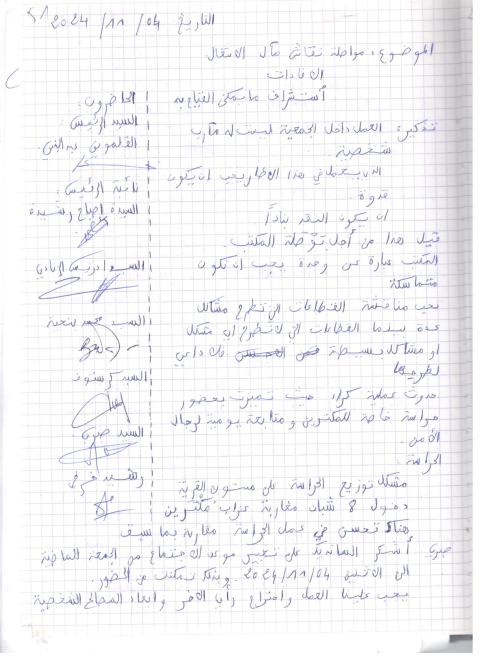 التاريخ 2024/11/04
الموضوع: مواصلة نقاش
الافادات
أستشراف ما يمكن القيام به
الحاضرون:
السيد الرئيس:
تذكير: العمل داخل الجمعية ليست له مآرب
شخصية
يعمل في هذا الاطار يجب ان يكون
نائبة الرئيس:
قدوة
السيدة رشيدة
ان يكون النقد بناءاً
قيل هذا من أجل المكتب
المكتب عبارة عن وحدة يجب ان تكون
السيد ادريس
متماسكة
يجب مناقشة القطاعات التي تطرح مشاكل
عدة بينما القطاعات التي لا تطرح اي مشكل
السيد محمد
او مشاكل بسيطة فلا داعي
لطرحها
السيد
حدوث عملية كراء حيث تميزت بحضور
حراسة خاصة للمكترين و متابعة يومية لرجال
السيد صبري
الأمن.
الحراسة:
مشكل توزيع الحراسة على مستوى القرية
رشيد
دخول 8 شبان مغاربة عزاب مكترين
هناك تحسن في عمل الحراسة مقارنة بما سبق
صبري: أشكر على تغيير موعد الاجتماع من الجمعة الماضية
الى الاثنين 2024/11/04 من الحضور.
يجب علينا العمل واحترام رأي الآخر و المصالح الشخصية